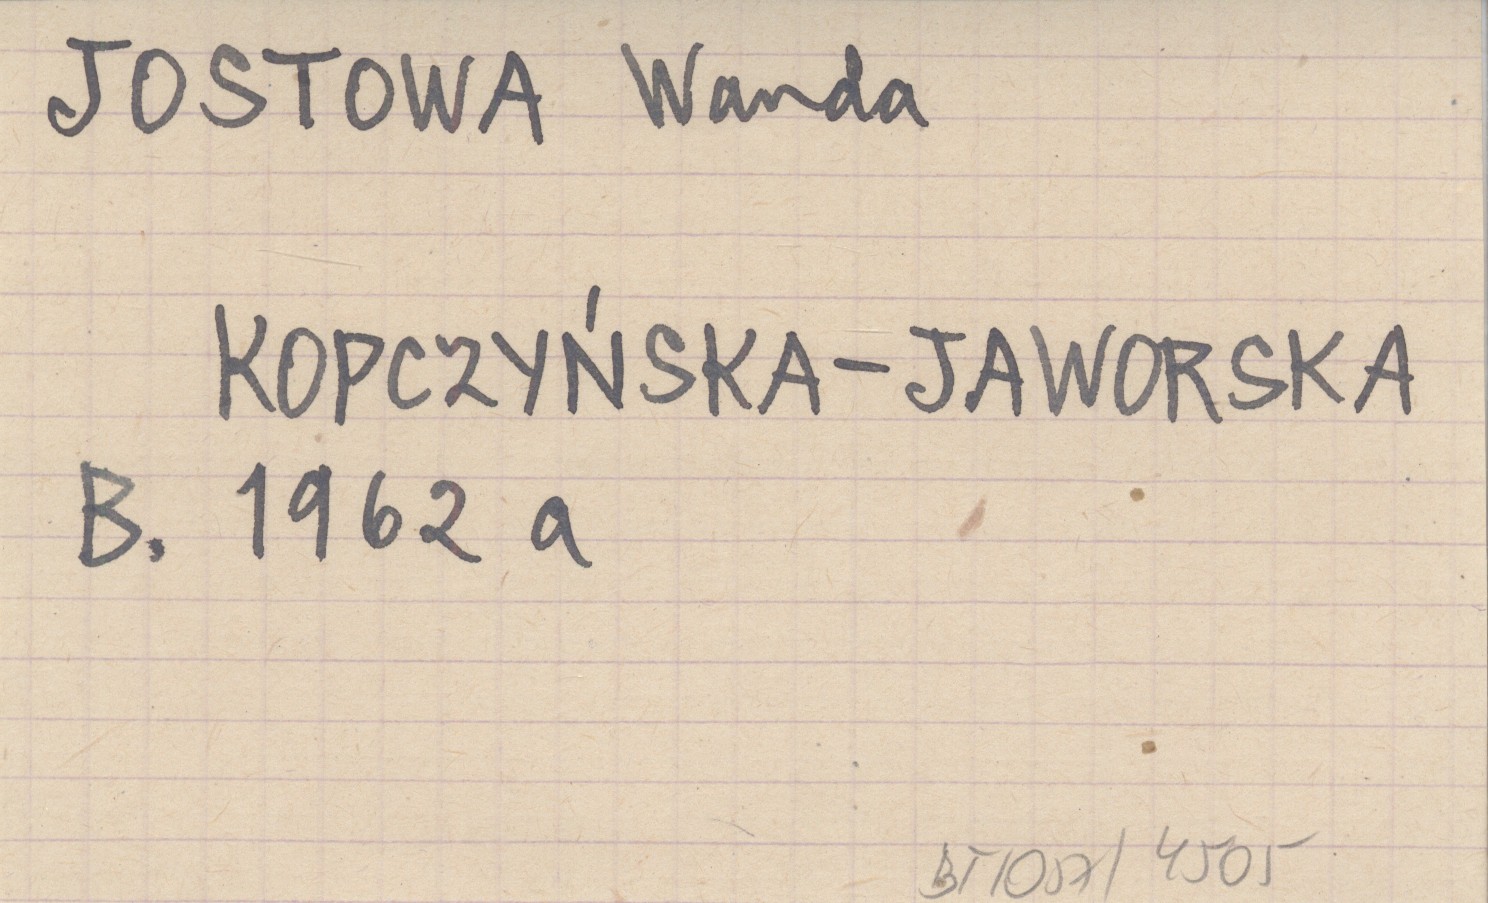 JOSTOWA Wanda
KOPCZYŃSKA-JAWORSKA
B. 1962 a
4505